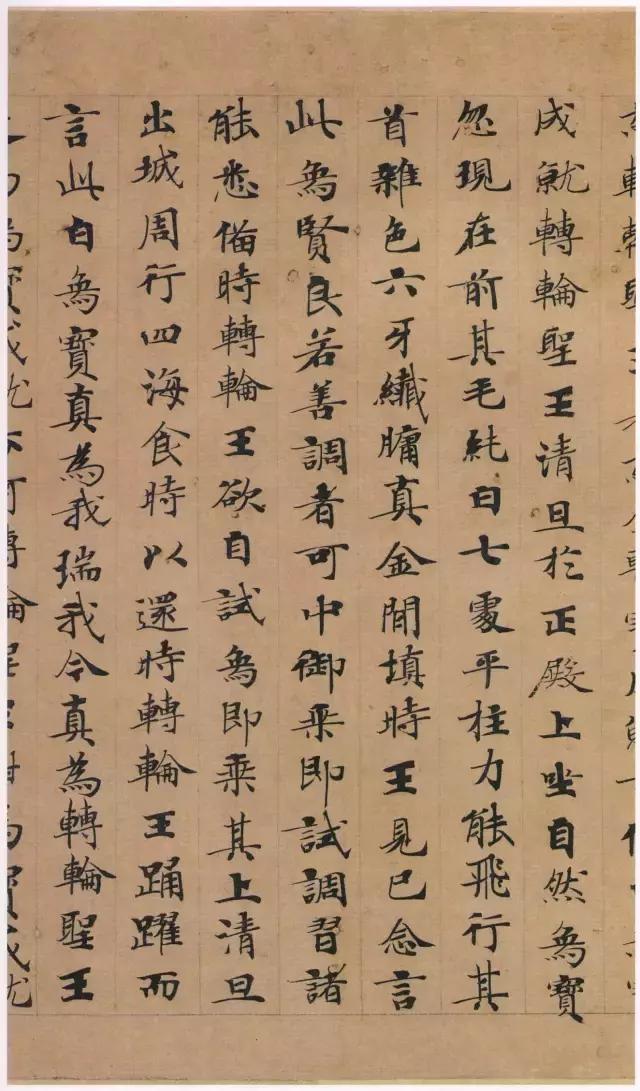 成就轉輪聖王清旦於正殿上坐自然象寶
忽現在前其毛純白七處平柱力能飛行其
首雜色六牙纖𦟛真金間填時王見已念言
此象賢良若善調者可中御乘即試調習諸
能悉俻時轉輪王欲自試象即乘其上清旦
出城周行四海食時以還時轉輪王踊躍而
言此白象寶真為我瑞我今真為轉輪聖王
是為象寶成就云何轉輪聖王紺馬寶成就